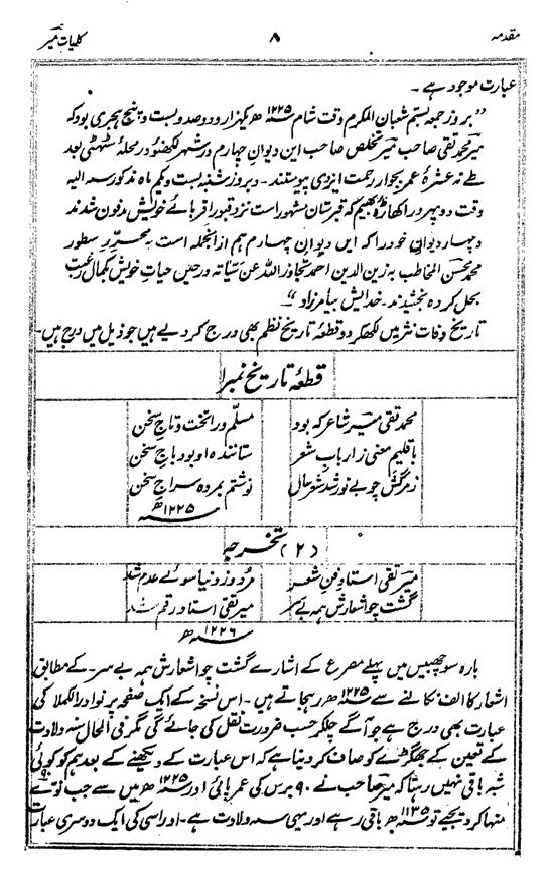 مقدمہ ۸ کلیات میر
عبارت موجود ہے ۔
”بروز جمعہ بستم شعبان المکرم وقت شام ۱۲۲۵ھ یکہزار و دوصد و بست و پنج ہجری بود کہ
میر محمد تقی صاحب میر تخلص صاحب ایں دیوان چہارم در شہر لکھنؤ در محلہ سٹہٹی بعد
طے نہ عشرۂ عمر بجوار رحمت ایزدی پیوستند ۔ و بروز شنبہ بست و یکم ماہ مذکور سنہ الیہ
وقت دوپہر در اکھاڑہ بھیم کہ قبرستان مشہور است نزد قبور اقربائے خویش مدفون شدند
و چہار دیوان خود را کہ ایں دیوان چہارم ہم از انجملہ است بہ محرر سطور
محمد محسن المخاطب بہ زین الدین احمد تجاوز اللہ عن سیاتہ در حین حیات خویش بکمال رغبت
بحل کردہ بخشیدند ۔ خدایش بیامرزاد“ ۔
تاریخ وفات نثر میں لکھکر دو قطعۂ تاریخ نظم بھی درج کر دیے ہیں جو ذیل میں درج ہیں ۔
قطعۂ تاریخ نمبر۱
محمد تقی میر شاعر کہ بود مسلم ورا تخت و تاج سخن
باقلیم معنی ز ارباب شعر ستانندہ او بود باج سخن
ز مرگش چو بے نور شد شعر سال نوشتم بمردہ سراج سخن
۱۲۲۵ھ
(۲) تخرجہ
میر تقی استاد فن شعر مرد و ز دنیا سوئے عدم شد
گشت چو اشعارش ہمہ بے سر میر تقی استاد رقم شد
۱۲۲۶ھ
بارہ سو چھبیس میں پہلے مصرع کے اشارے گشت چو اشعارش ہمہ بے سر ۔ کے مطابق
اشعار کا الف نکالنے سے ۱۲۲۵ھ رہجاتے ہیں ۔ اس نسخہ کے ایک صفحہ پر نوادر الکملا کی
عبارت بھی درج ہے جو آگے چلکر حسب ضرورت نقل کی جائے گی مگر فی الحال سنہ ولادت
کے تعین کے جھگڑے کو صاف کر دینا ہے کہ اس عبارت کے دیکھنے کے بعد ہم کو کوئی
شبہ باقی نہیں رہتا کہ میر صاحب نے ۹۰ برس کی عمر پائی اور ۱۲۲۵ھ میں سے جب نوے ۹۰
منہا کر دیجیے تو ۱۱۳۵ھ باقی رہے اور یہی سنہ ولادت ہے ۔ اور اسی کی ایک دوسری عبارت